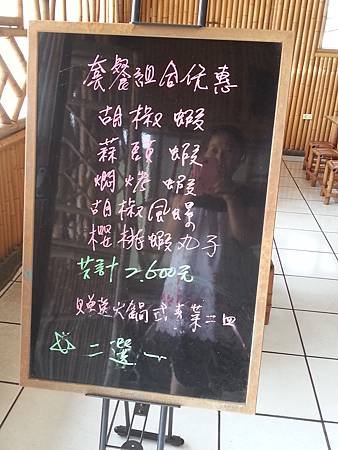 套餐組合优惠
胡椒蝦
蒜頭蝦
焗烤蝦
胡椒風螺
櫻桃蝦丸子
共計2,600元
贈送火鍋或青菜
二選一